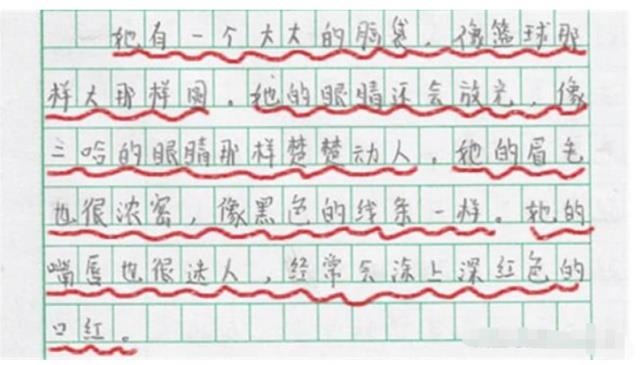 她有一个大大的脑袋，像篮球那
样大那样圆。她的眼睛还会放光，像
二哈的眼睛那样楚楚动人，她的眉毛
也很浓密，像黑色的线条一样。她的
嘴唇也很迷人，经常会涂上深红色的
口红。